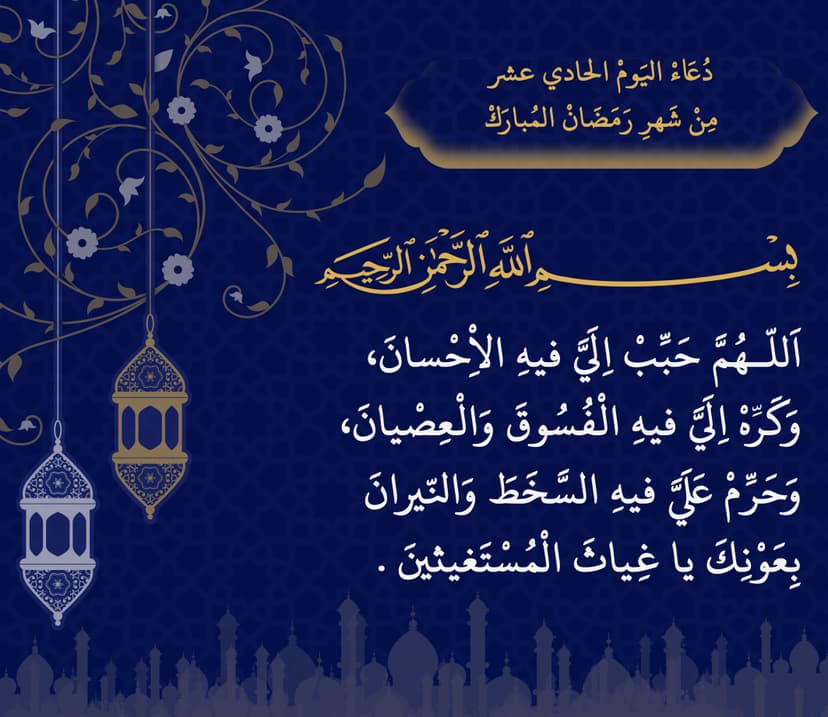 دُعَاءْ اليَومْ الحادي عشر
مِنْ شَهرِ رَمَضَانْ المُبارَكْ
بِسْمِ اللَّهِ الرَّحْمَٰنِ الرَّحِيمِ
اَللّـهُمَّ حَبِّبْ اِلَيَّ فيهِ الاِْحْسانَ،
وَكَرِّهْ اِلَيَّ فيهِ الْفُسُوقَ وَالْعِصْيانَ،
وَحَرِّمْ عَلَيَّ فيهِ السَّخَطَ وَالنّيرانَ
بِعَوْنِكَ يا غِياثَ الْمُسْتَغيثينَ .